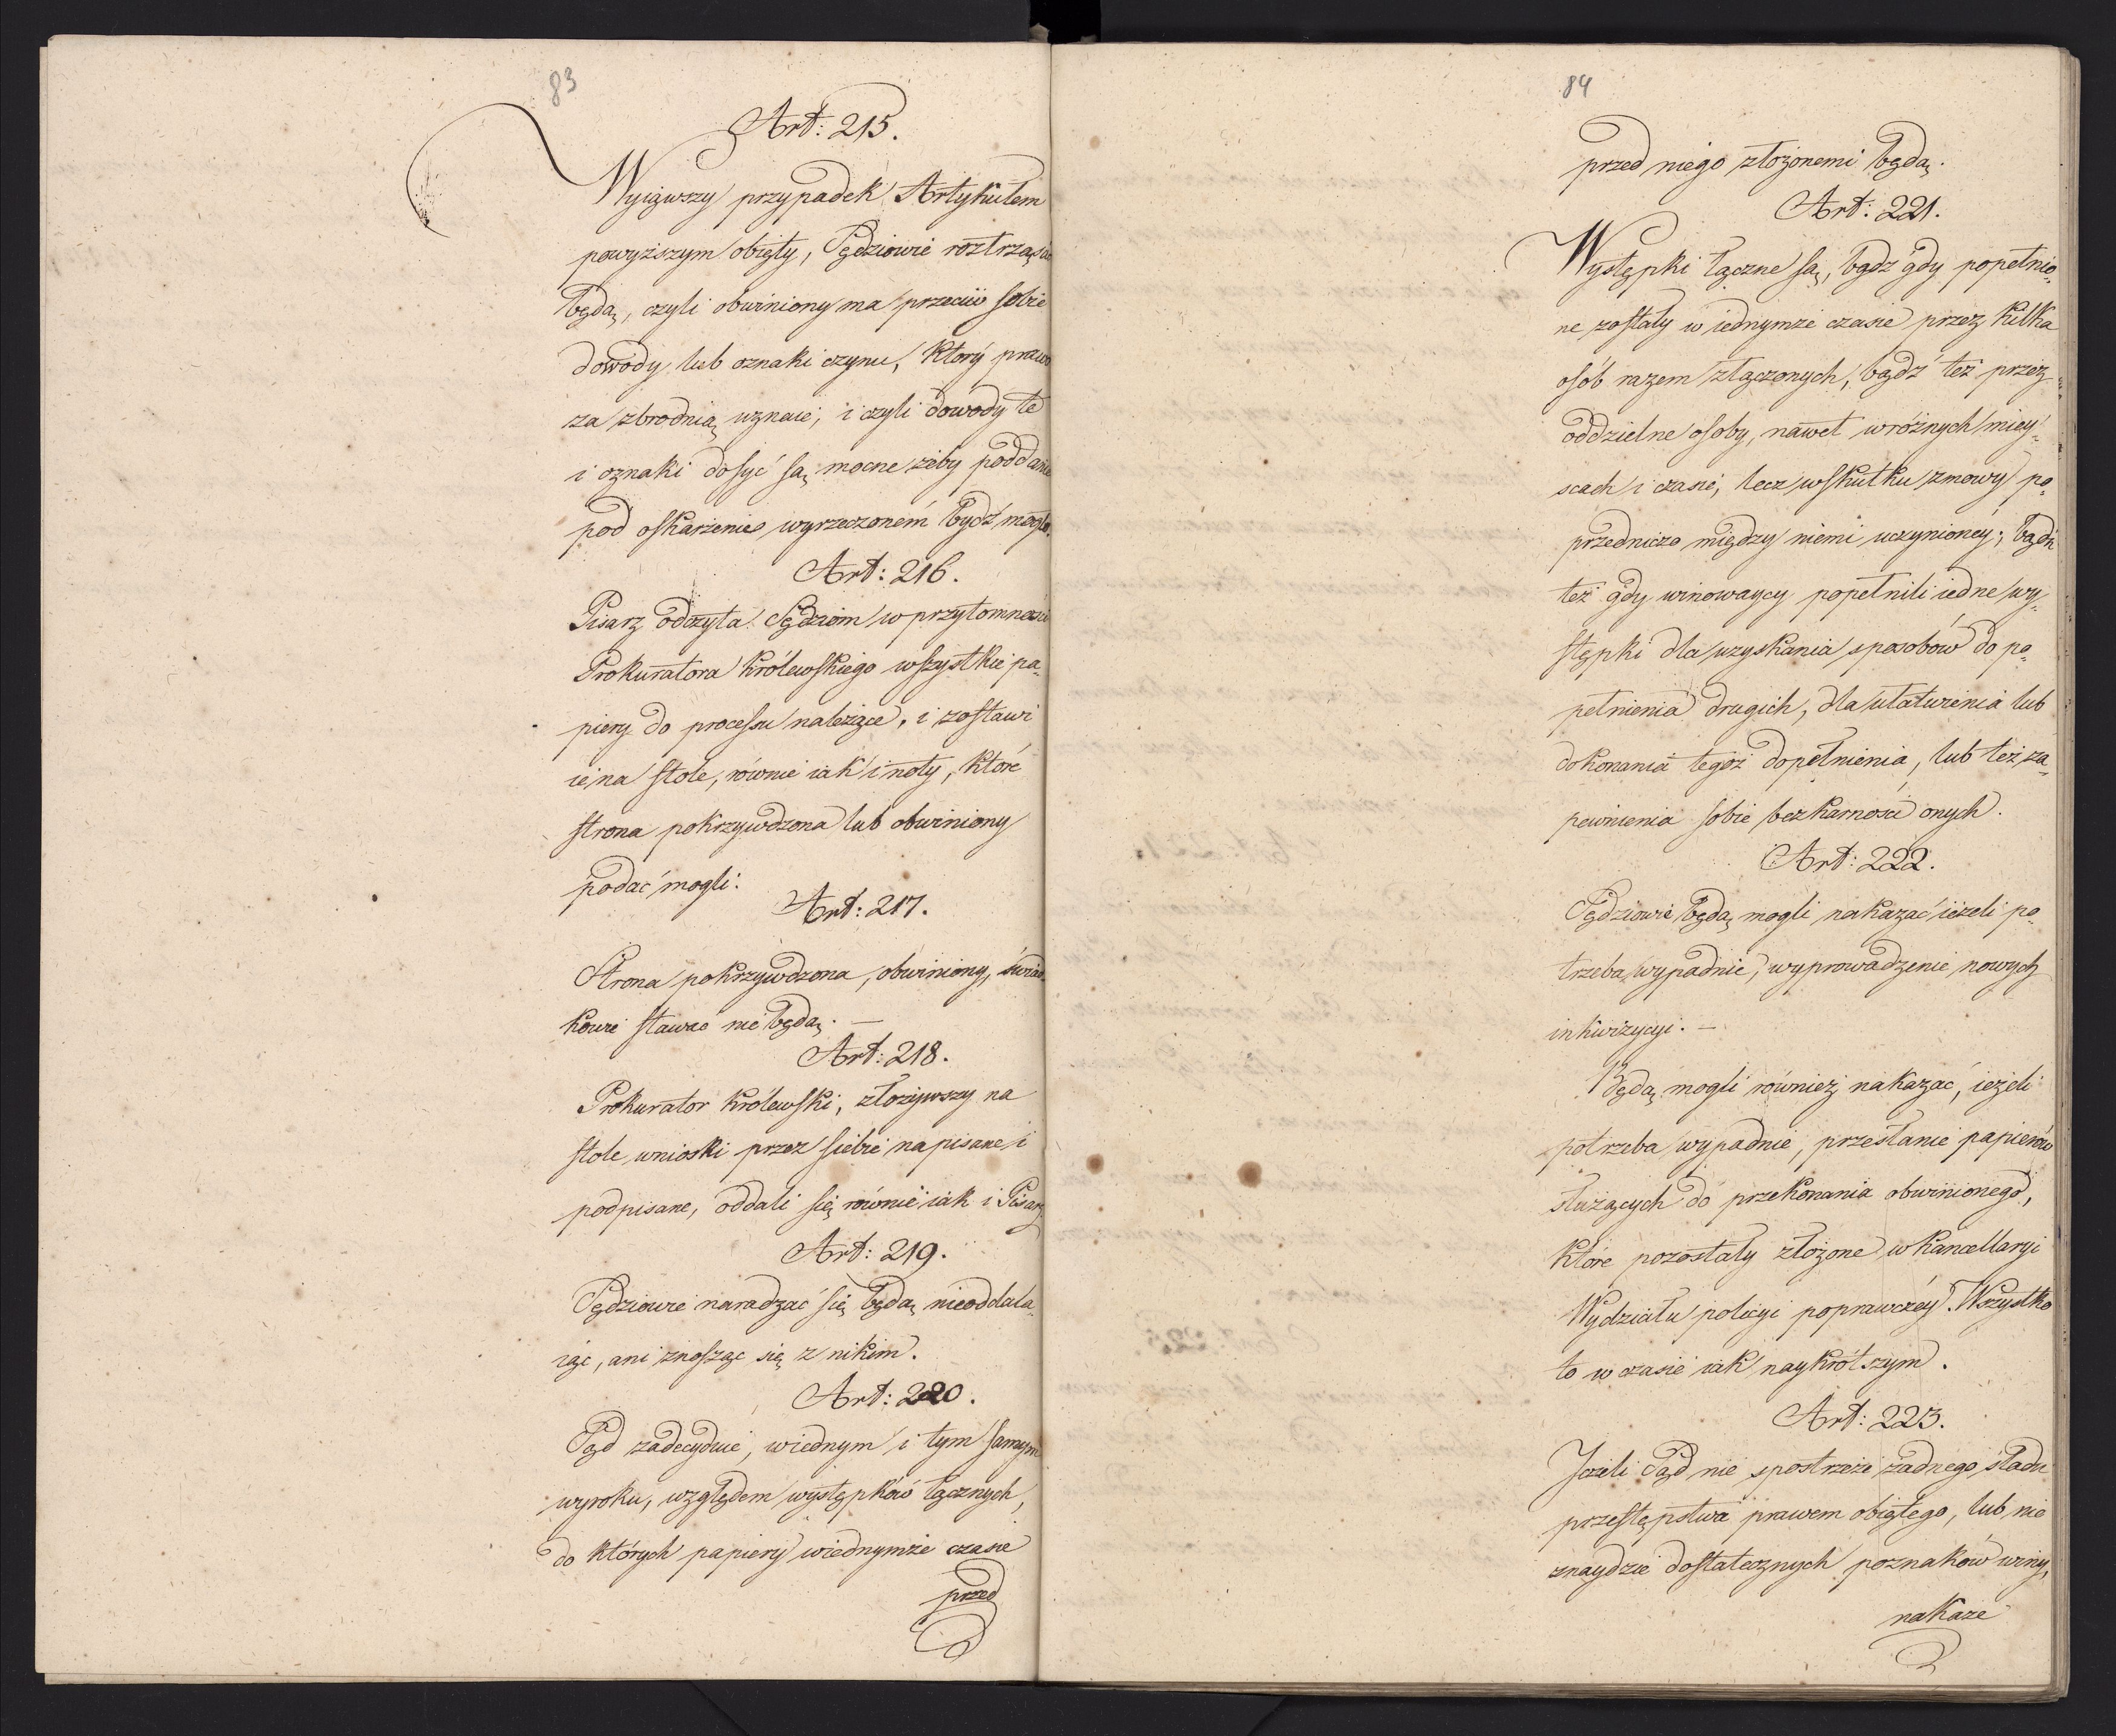 83
Art: 215.
Wyiąwszy przypadek Artykułem
powyższym obięty, Sędziowie roztrząsać
będą, czyli obwiniony ma przeciw sobie
dowody lub oznaki czynu, który prawo
za zbrodnią uznaie, i czyli dowody te
i oznaki dosyć są mocne żeby poddanie
pod oskarżenie wyrzeczoném bydź mogło.
Art: 216.
Pisarz odczyta Sędziom w przytomności
Prokuratora Królewskiego wszystkie pa„
piery do processu należące, i zostawi
ie na stole, równie iak i noty, które
strona pokrzywdzona lub obwiniony
podać mogli.
Art: 217.
Strona pokrzywdzona, obwiniony, świad„
kowie stawać nie będą. —
Art: 218.
Prokurator królewski, złożywszy na
stole wnioski przez siebie napisane i
podpisane, oddali się równie iak i Pisarz
Art: 219.
Sędziowie naradzać się będą nieoddala„
iąc, ani znosząc się z nikim.
Art: 220.
Sąd zadecyduie, wiednym i tym samym
wyroku, względem występków łącznych,
do których papiery wiednymże czasie
przed
84
przed niego złożonemi będą.
Art: 221.
Występki łączne są, bądz gdy popełnio„
ne zostały w iednymże czasie przez kilka
osób razem złączonych, bądź też przez
oddzielne osoby, nawet wróżnych miey„
scach i czasie, lecz wskutku zmowy po„
przedniczo między niemi uczynioney; bądź
też gdy winowaycy popełnili iedne wy„
stępki dla uzyskania sposobów do po„
pełnienia drugich, dla ułatwienia lub
dokonania tegoż dopełnienia, lub też za„
pewnienia sobie bezkarności onych.
Art: 222.
Sędziowie będą mogli nakazać ieżeli po„
trzeba wypadnie, wyprowadzenie nowych
inkwizycyi. —
Będą mogli również nakazać, ieżeli
potrzeba wypadnie, przesłanie papierów
służących do przekonania obwinionego,
które pozostały złożone w kancellaryi
Wydziału policyi poprawczéy. Wszystko
to w czasie iak naykrótszym.
Art: 223.
Jeżeli Sąd nie spostrzeże żadnego śladu
przestępstwa prawem obiętego, lub nie
znaydzie dostatecznych poznaków winy,
nakaże